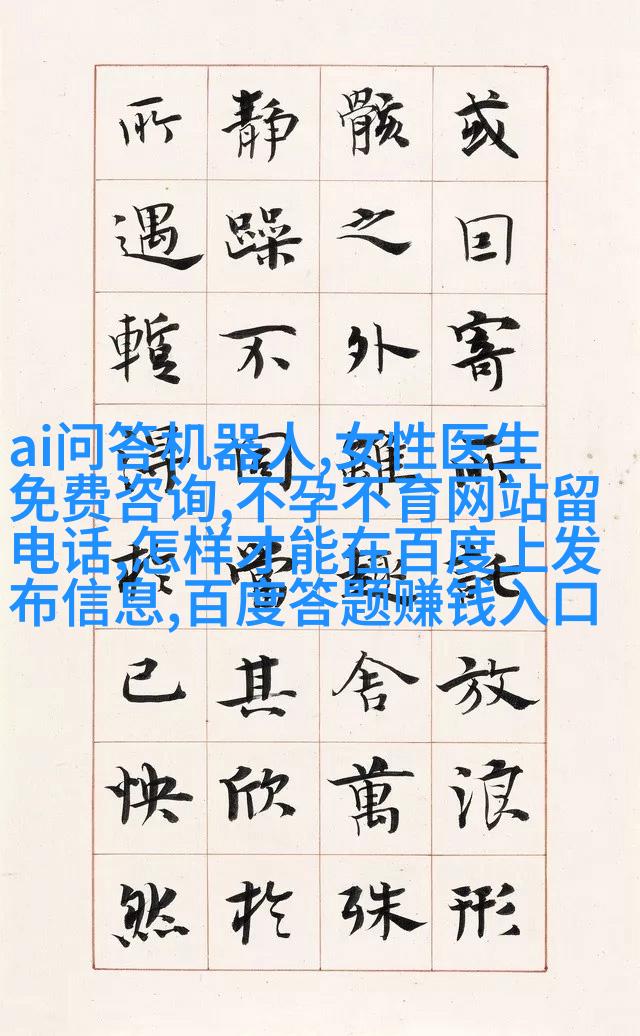 或囙寄所託放浪形
骸之外雖趣舍萬殊
靜躁不同當其欣於
所遇暫得於己怏然
ai问答机器人,女性医生
免费咨询,不孕不育网站留
电话,怎样才能在百度上发
布信息,百度答题赚钱入口